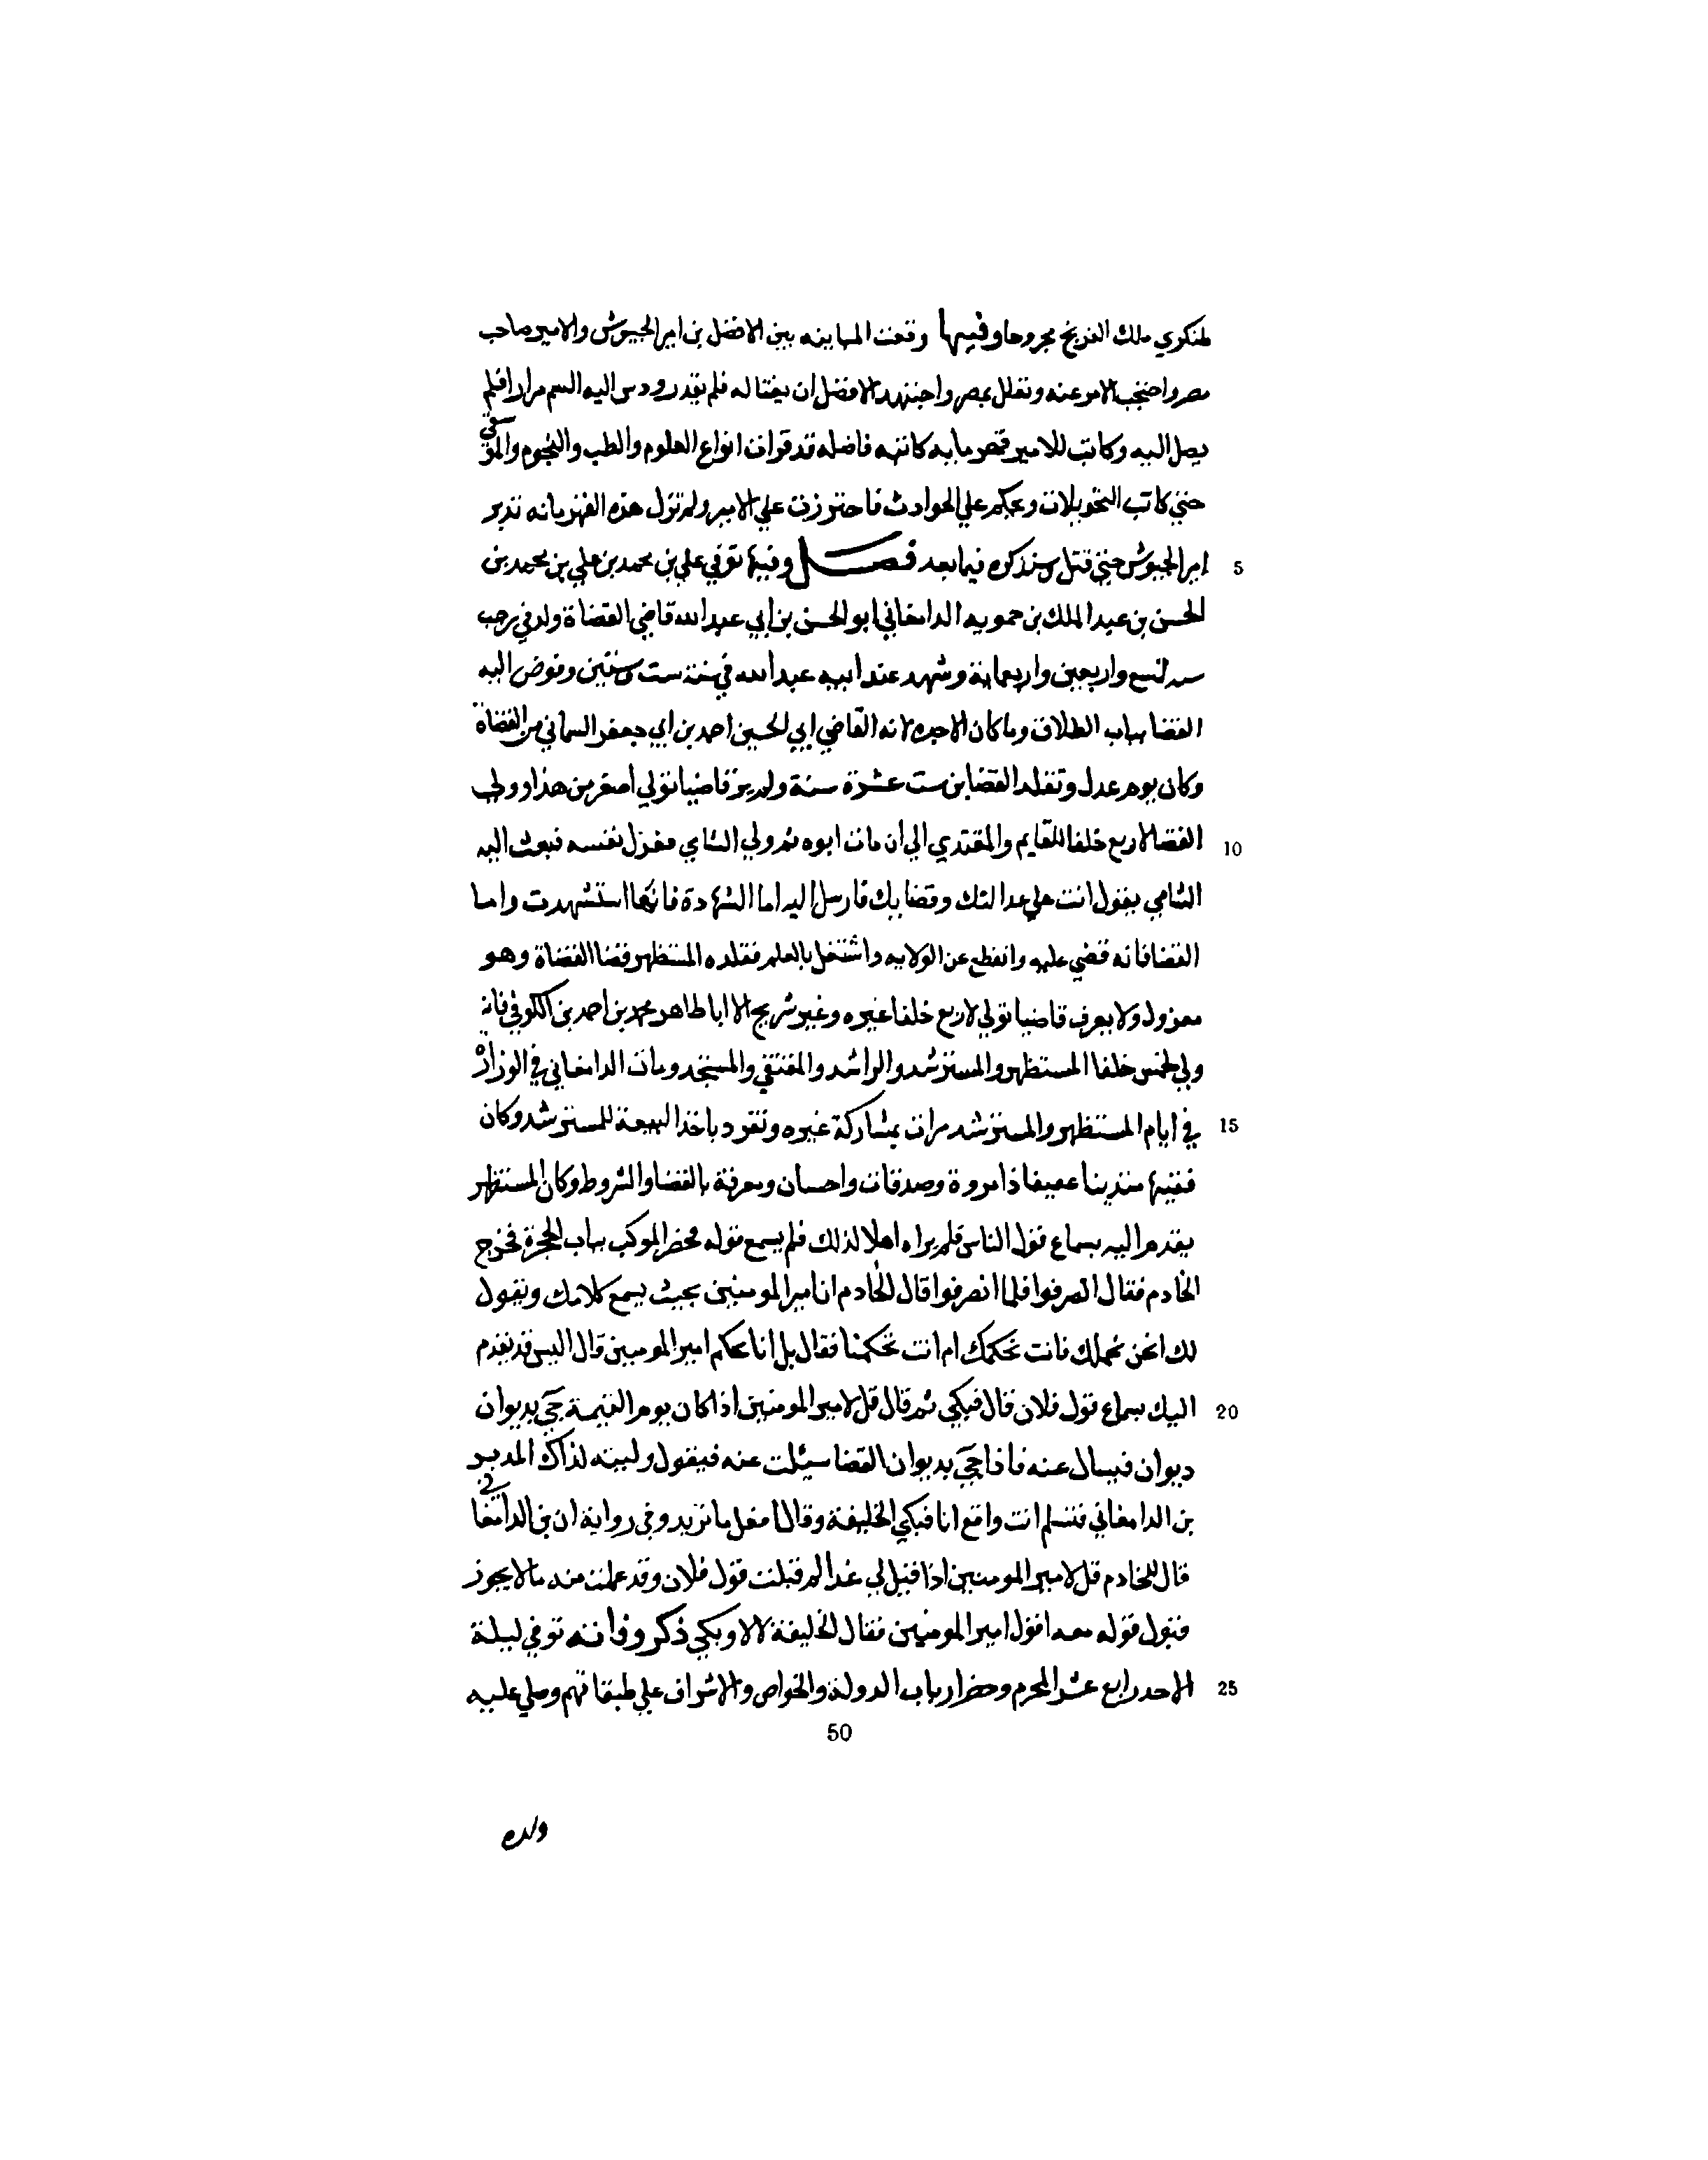 لمنكري ملك الفرنج مجروحا وفيها وقعت المباينه بين الافضل بن امير الجيوش والامير صاحب
مصر واحتجب الامر عنه وتعلل بمصر واجتهد الافضل ان يغتاله فلم يقدر ودس اليه السم مرارا فلم
يصل اليه وكانت للامير قهرمايه كاتبه فاضله قد قرات انواع العلوم والطب والنجوم والموسيقي
حتي كانت التحويلات وتحكم علي الحوادث فاحترزت علي الامير ولم تزل هذه القهرمانه تدبر
5 امير الجيوش حتي قتل وسنذكره فيما بعد فصل وفيها توفي علي بن محمد بن علي بن محمد بن
الحسن بن عبد الملك بن حمويه الدامغاني ابو الحسن بن ابي عبد الله قاضي القضاة ولد في رجب
سنه تسع واربعين واربعماية وشهد عند ابيه عبد الله في سنة ست وستين وفوض اليه
القضا بباب الطلاق وما كان الا جده لانه القاضي ابي الحسين احمد بن ابي جعفر السماني من القضاة
وكان يوم عدل وتقلد القضا بن ست عشرة سنة ولم ير قاضيا تولي اصغر من هذا وولي
10 القضا لاربع خلفا للقايم والمقتدي الي ان مات ابوه ثم ولي الشامي فعزل نفسه فبعث اليه
الشامي يقول انت علي عدالتك وقضايك فارسل اليه اما الشهادة فانها استشهدت واما
القضا فانه قضي عليه وانقطع عن الولايه واشتغل بالعلم فقلده المستظهر قضا القضاة وهو
معزول ولا يعرف قاضيا تولي لاربع خلفا غيره وغير شريح الا ابا طاهر محمد بن احمد بن الكوفي فانه
ولي لخمس خلفا المستظهر والمسترشد والراشد والمقتفي والمستنجد ومات الدامغاني في الوزارة
15 في ايام المستظهر والمسترشد مرات بمشاركة غيره وتفرد باخذ البيعة للمسترشد وكان
فقيها متدينا عفيفا ذا مروة وصدقات واحسان ومعرفة بالقضا والشروط وكان المستظهر
يقدم اليه بسماع قول الناس فلم يراه اهلا لذلك فلم يسمع قوله فحضر الموكب بباب الحجرة فخرج
الخادم فقال انصرفوا فلما انصرفوا قال الخادم ان امير المومنين بحيث يسمع كلامك ويقول
لك انحن نحملك فانت تحكمك ام انت تحكمنا فقال بل انا بحكم امير المومنين قال اليس قد تقدم
20 اليك بسماع قول فلان قال فبكي ثم قال قل لامير المومنين اذا كان يوم القيمة جي بديوان
ديوان فيسال عنه فاذا جي بديوان القضا سيلت عنه فيقول وليته لذاك المدبر
بن الدامغاني فتسلم انت واقع انا فبكي الخليفة وقال افعل ما تريد وفي رواية ان بن الدامغاني
قال للخادم قل لامير المومنين اذا قيل لي غدا لم قبلت قول فلان وقد علمت منه ما لا يجوز
قبول قوله معه اقول امير المومنين فقال الخليفة لا لا وبكي ذكر وفاته توفي ليلة
25 الاحد رابع عشر المحرم وحضر ارباب الدولة والخواص والاشراف علي طبقاتهم وصلي عليه
50
ولده